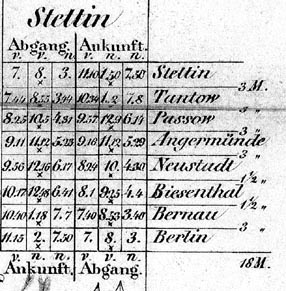 Stettin
Abgang. Ankunft.
v. v. n. v. n. n.
7. 8. 3. 11.10 1.50 7.50 Stettin
3 M.
7.44 8.55 3.44 10.34 1.2 7.8 Tantow
3 "
8.25 10.5 4.31 9.57 12.9 6.14 Passow
3 "
9.11 11.12 5.23 9.16 11.12 5.29 Angermünde
3 "
9.56 12.16 6.17 8.24 10. 4.30 Neustadt
1½ "
10.17 12.48 6.41 8.1 9.25 4.4 Biesenthal
1½ "
10.40 1.18 7.7 7.40 8.53 3.40 Bernau
3 "
11.15 2. 7.50 7. 8. 3. Berlin
v. n. n. v. v. n.
Ankunft. Abgang. 18 M.